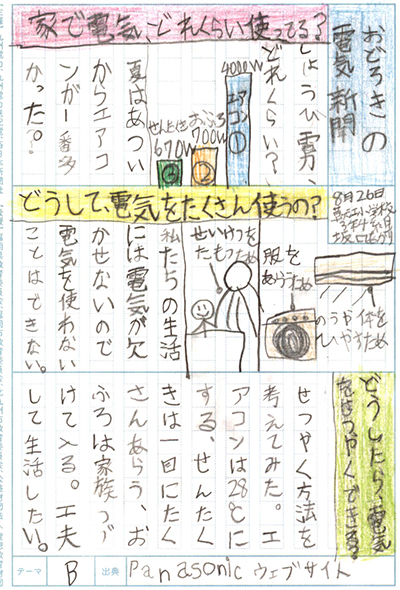 おどろきの
電気新聞
8月26日
家で電気、どれくらい使ってる?
しょうひ電力、
どれくらい?
4000W
エアコン
①
おふろ
700W
②
せんたくき
670W
③
夏はあつい
からエアコ
ンが一番多
かった。
どうして、電気をたくさん使うの?
体を
ひやすため
服を
あらうため
せいけつを
たもつため
私たちの生活
には電気が欠
かせないので
電気を使わない
ことはできない。
どうしたら、電気
をせつやくできる?
せつやく方法を
考えてみた。エ
アコンは28℃に
する、せんたく
きは一回にたく
さんあらう、お
ふろは家族つづ
けて入る。工夫
して生活したい。
テーマ B 出典 Panasonic ウェブサイト